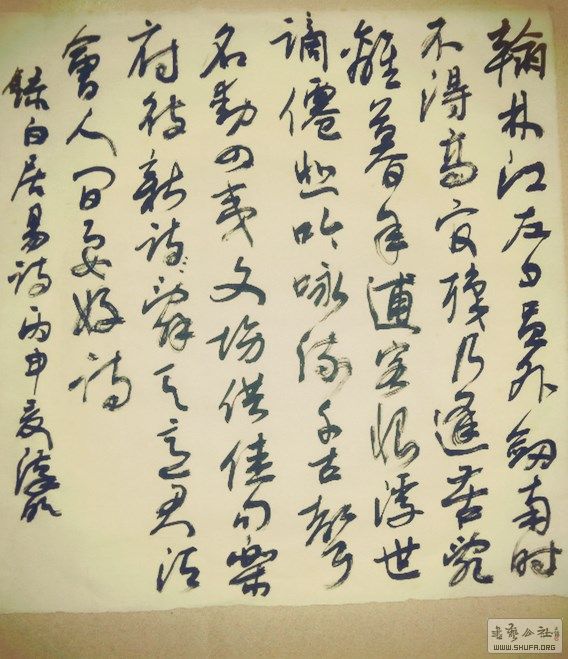 翰林江左日員外劍南时
不得高官職乃逢苦亂
離暮年逋客恨浮世
謫僊悲吟咏流千古聲
名動四夷文場供佳句樂
府待新詩辞天意君須
會人间要好詩
錄白居易诗丙申夏
书艺公社
WWW.SHUFA.ORG